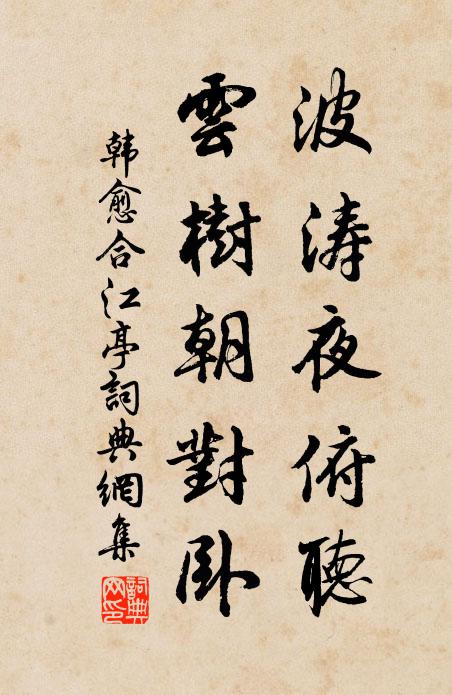 波涛夜俯聽
雲樹朝對卧
韩愈合江亭詞典網集
詞典網印